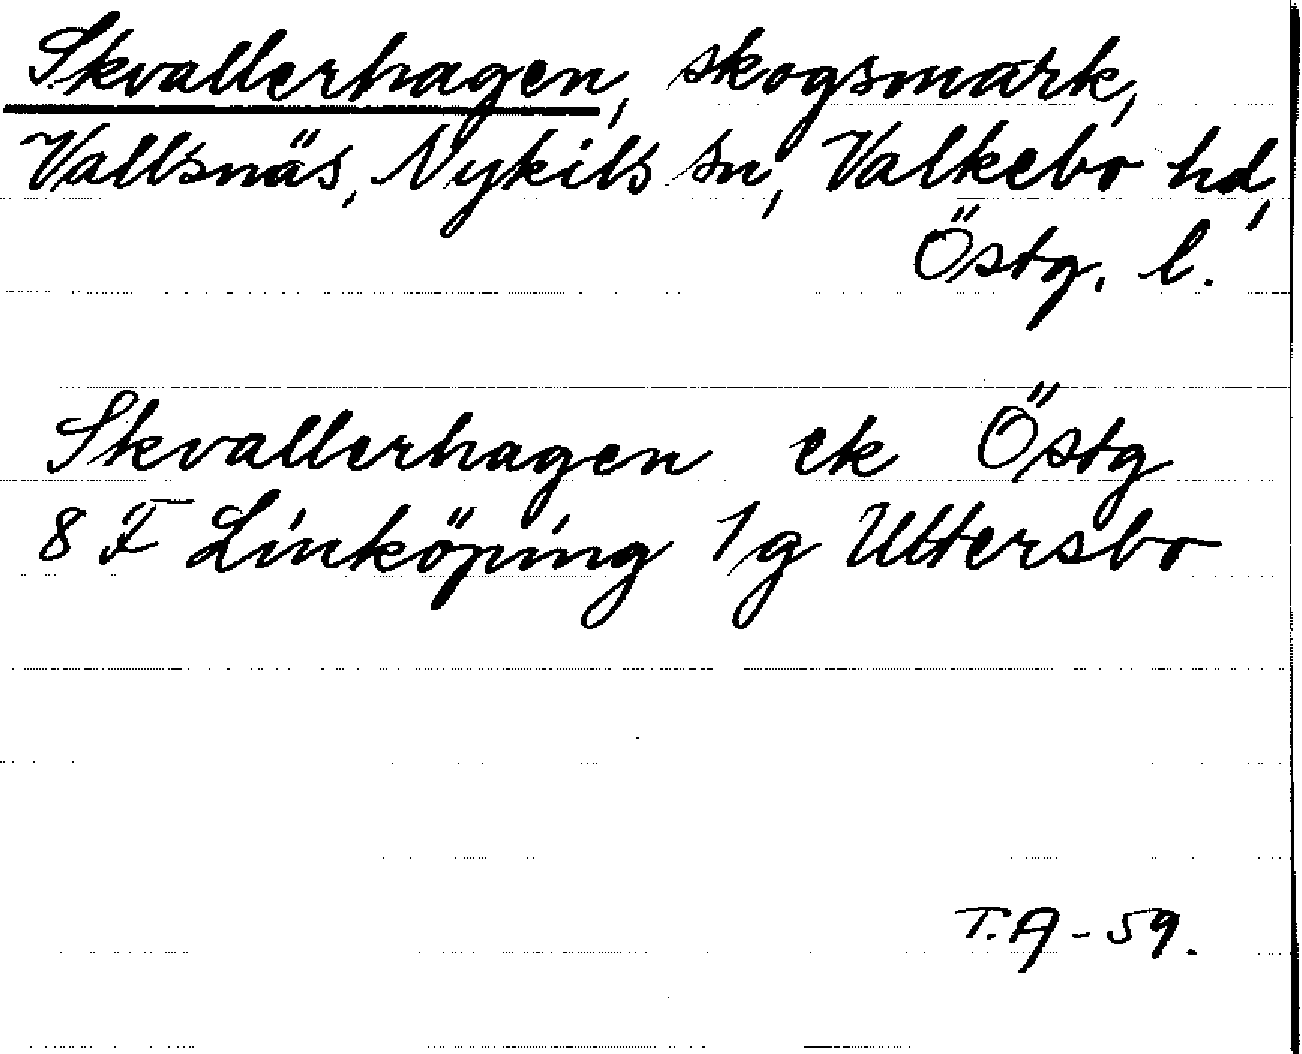 Skvallerhagen, skogsmark,
Vallsnäs, Nykils sn, Valkebo hd,
Östg. l.
Skvallerhagen ek Östg
8 F Linköping 1g Uttersbo
T.A-59.